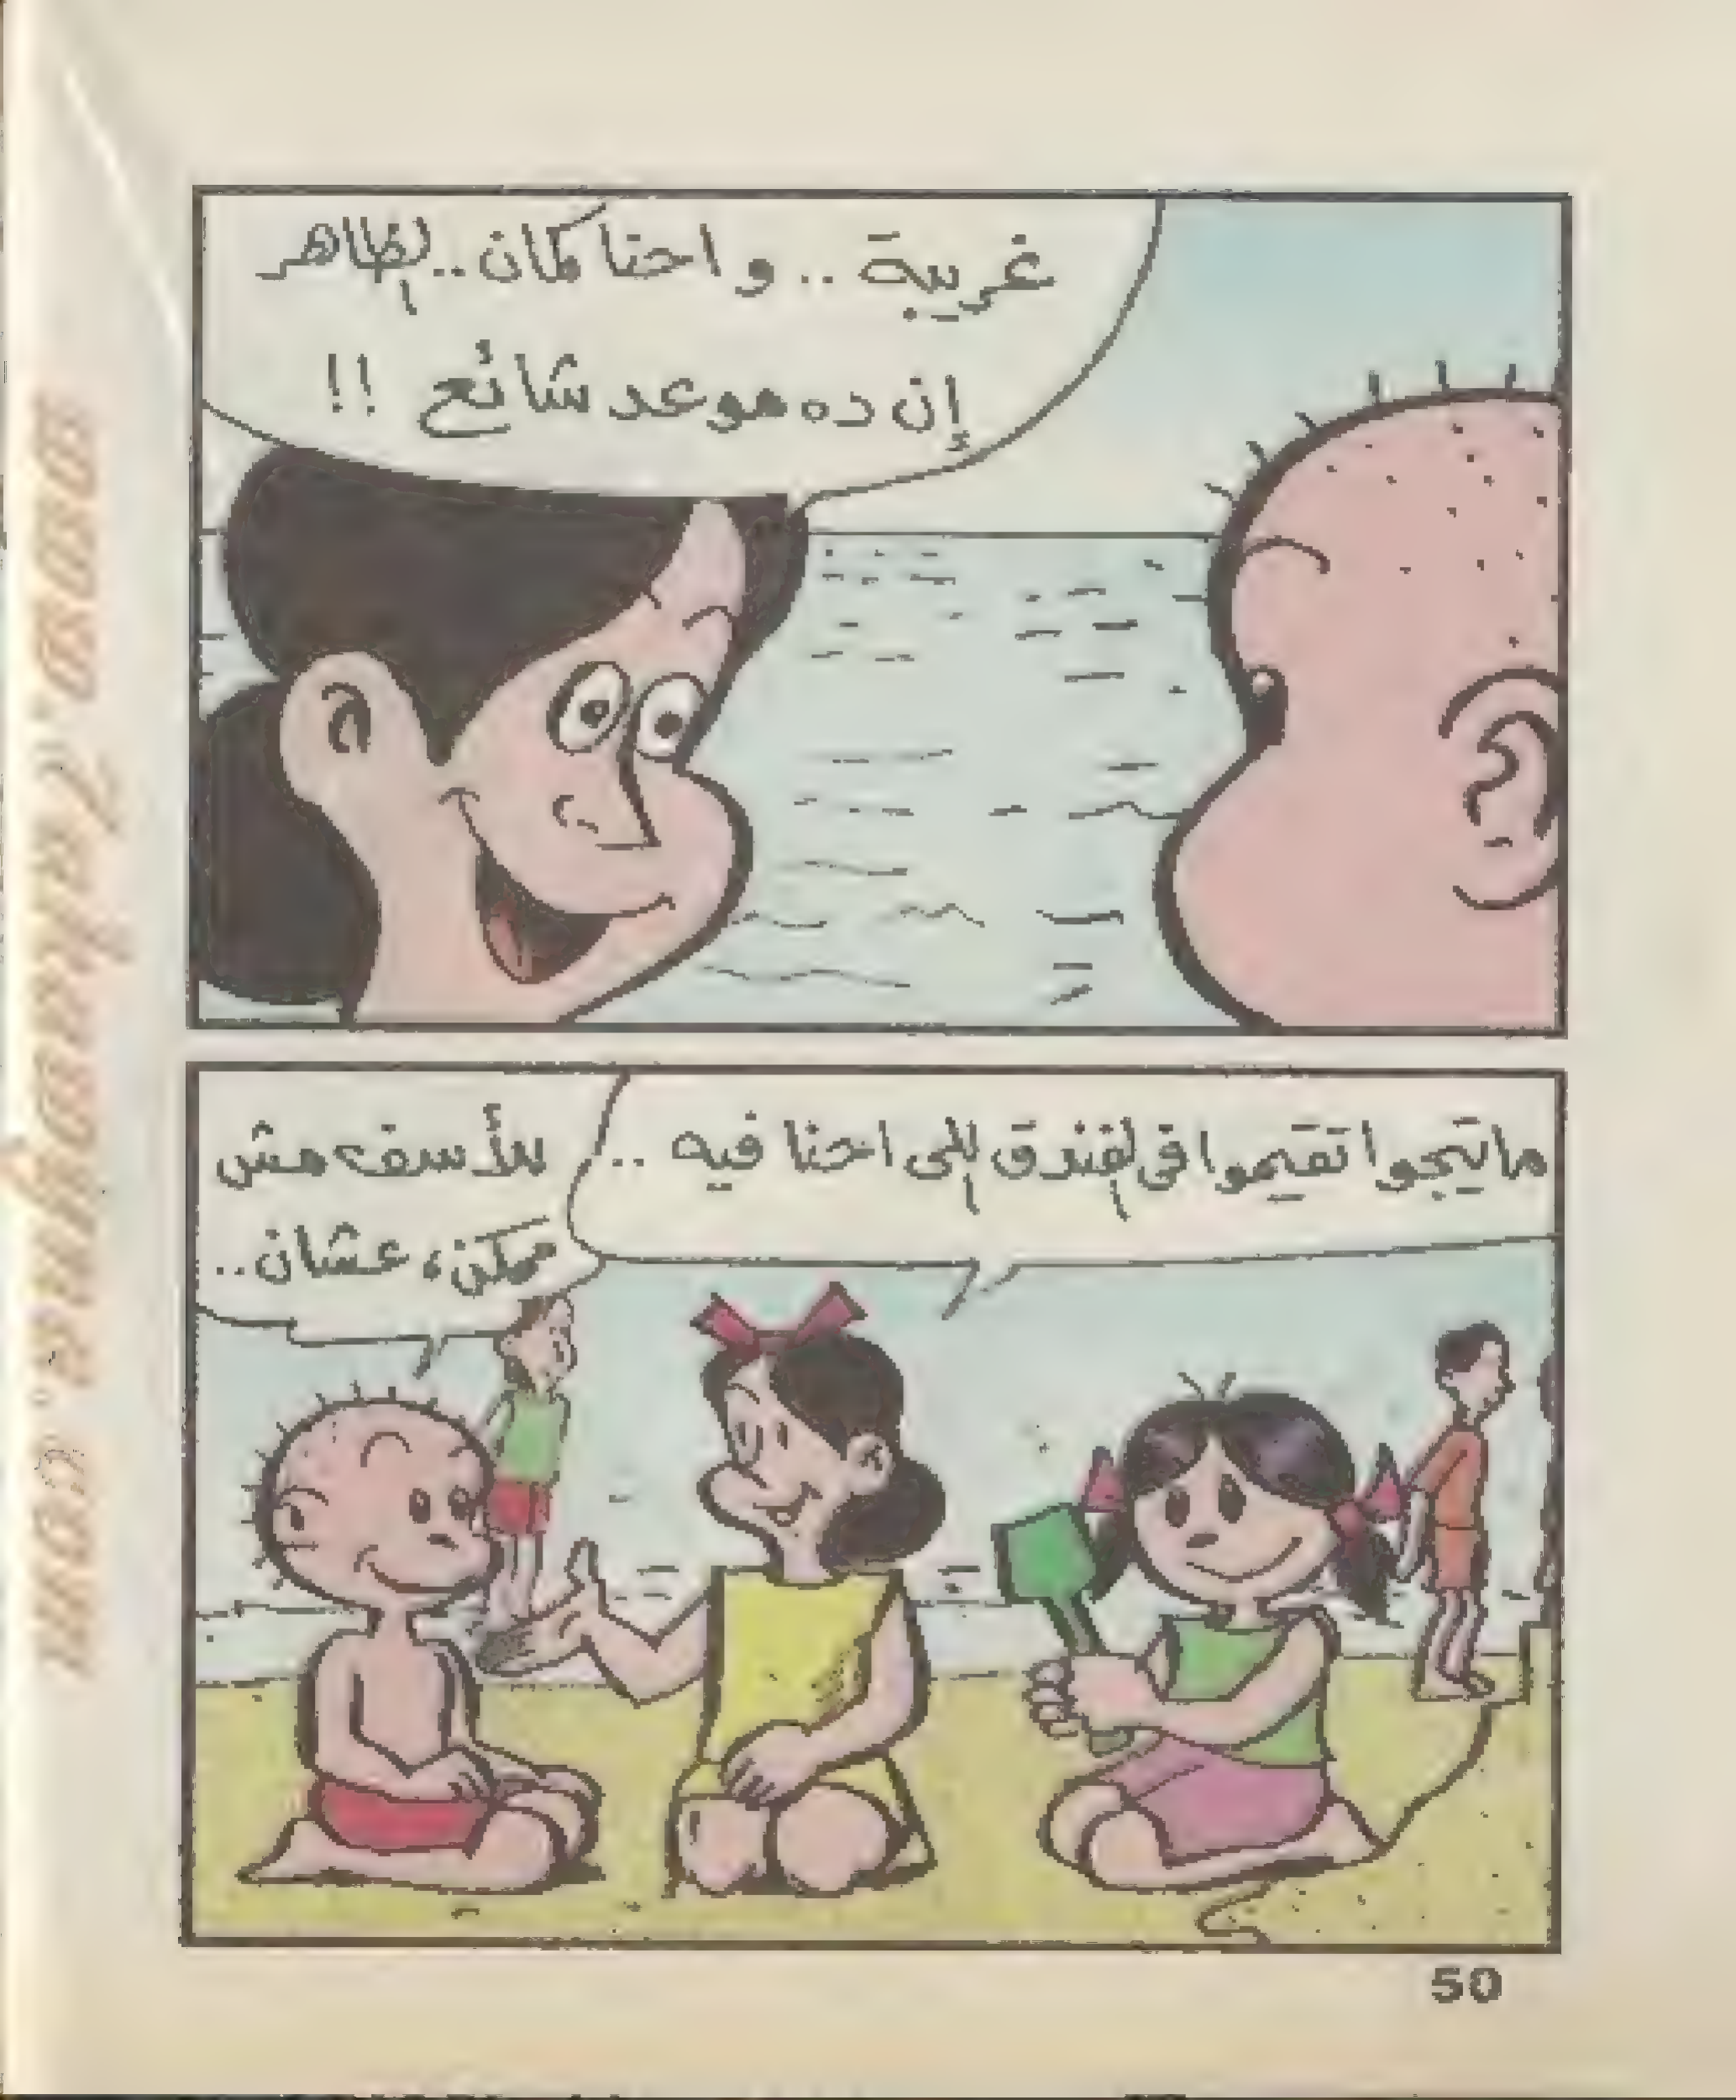 غريبة .. و احنا كمان .. الظاهر
إن ده موعد شائع !!
ما تيجوا تقيموا في الفندق اللى احنا فيه ..
للأسف مش
ممكن، عشان ..
50